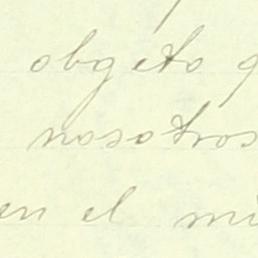 obgeto
nosotros
en el